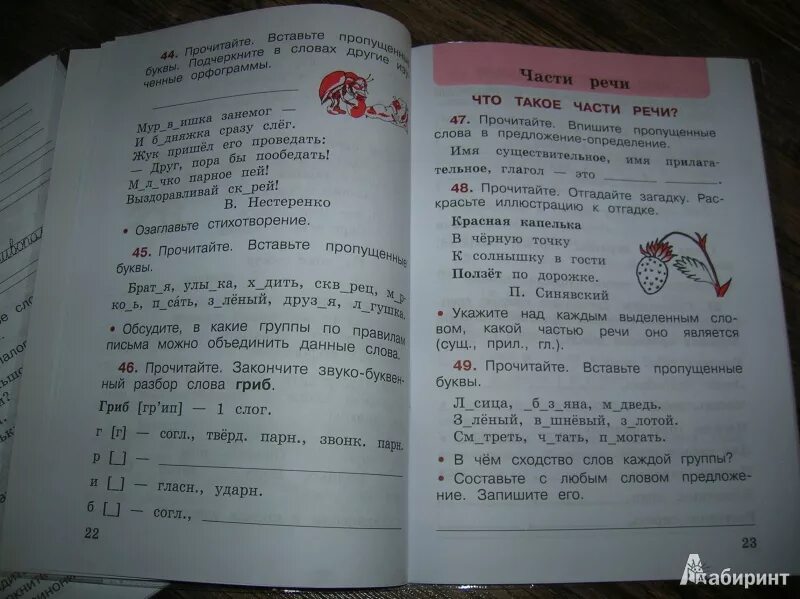 44. Прочитайте. Вставьте пропущенные
буквы. Подчеркните в словах другие изу-
ченные орфограммы.
Мур_в_ишка занемог —
И б_дняжка сразу слёг.
Жук пришёл его проведать:
— Друг, пора бы пообедать!
М_л_чко парное пей!
Выздоравливай ск_рей!
В. Нестеренко
• Озаглавьте стихотворение.
45. Прочитайте. Вставьте пропущенные
буквы.
Брат_я, улы_ка, х_дить, скв_рец, м_р-
ко_ь, п_са́ть, з_лёный, друз_я, л_гушка.
• Обсудите, в какие группы по правилам
письма можно объединить данные слова.
46. Прочитайте. Закончите звуко-буквен-
ный разбор слова гриб.
Гриб [гр'ип] — 1 слог.
г [г] — согл., твёрд. парн., звонк. парн.
р [_] —
и [_] — гласн., ударн.
б [_] — согл.,
22
Части речи
ЧТО ТАКОЕ ЧАСТИ РЕЧИ?
47. Прочитайте. Впишите пропущенные
слова в предложение-определение.
Имя существительное, имя прилага-
тельное, глагол — это
48. Прочитайте. Отгадайте загадку. Рас-
красьте иллюстрацию к отгадке.
Красная капелька
В чёрную точку
К солнышку в гости
Ползёт по дорожке.
П. Синявский
• Укажите над каждым выделенным сло-
вом, какой частью речи оно является
(сущ., прил., гл.).
49. Прочитайте. Вставьте пропущенные
буквы.
Л_сица, _б_з_яна, м_дведь.
З_лёный, в_шнёвый, з_лотой.
См_треть, ч_тать, п_могать.
• В чём сходство слов каждой группы?
• Составьте с любым словом предложе-
ние. Запишите его.
23
Лабиринт